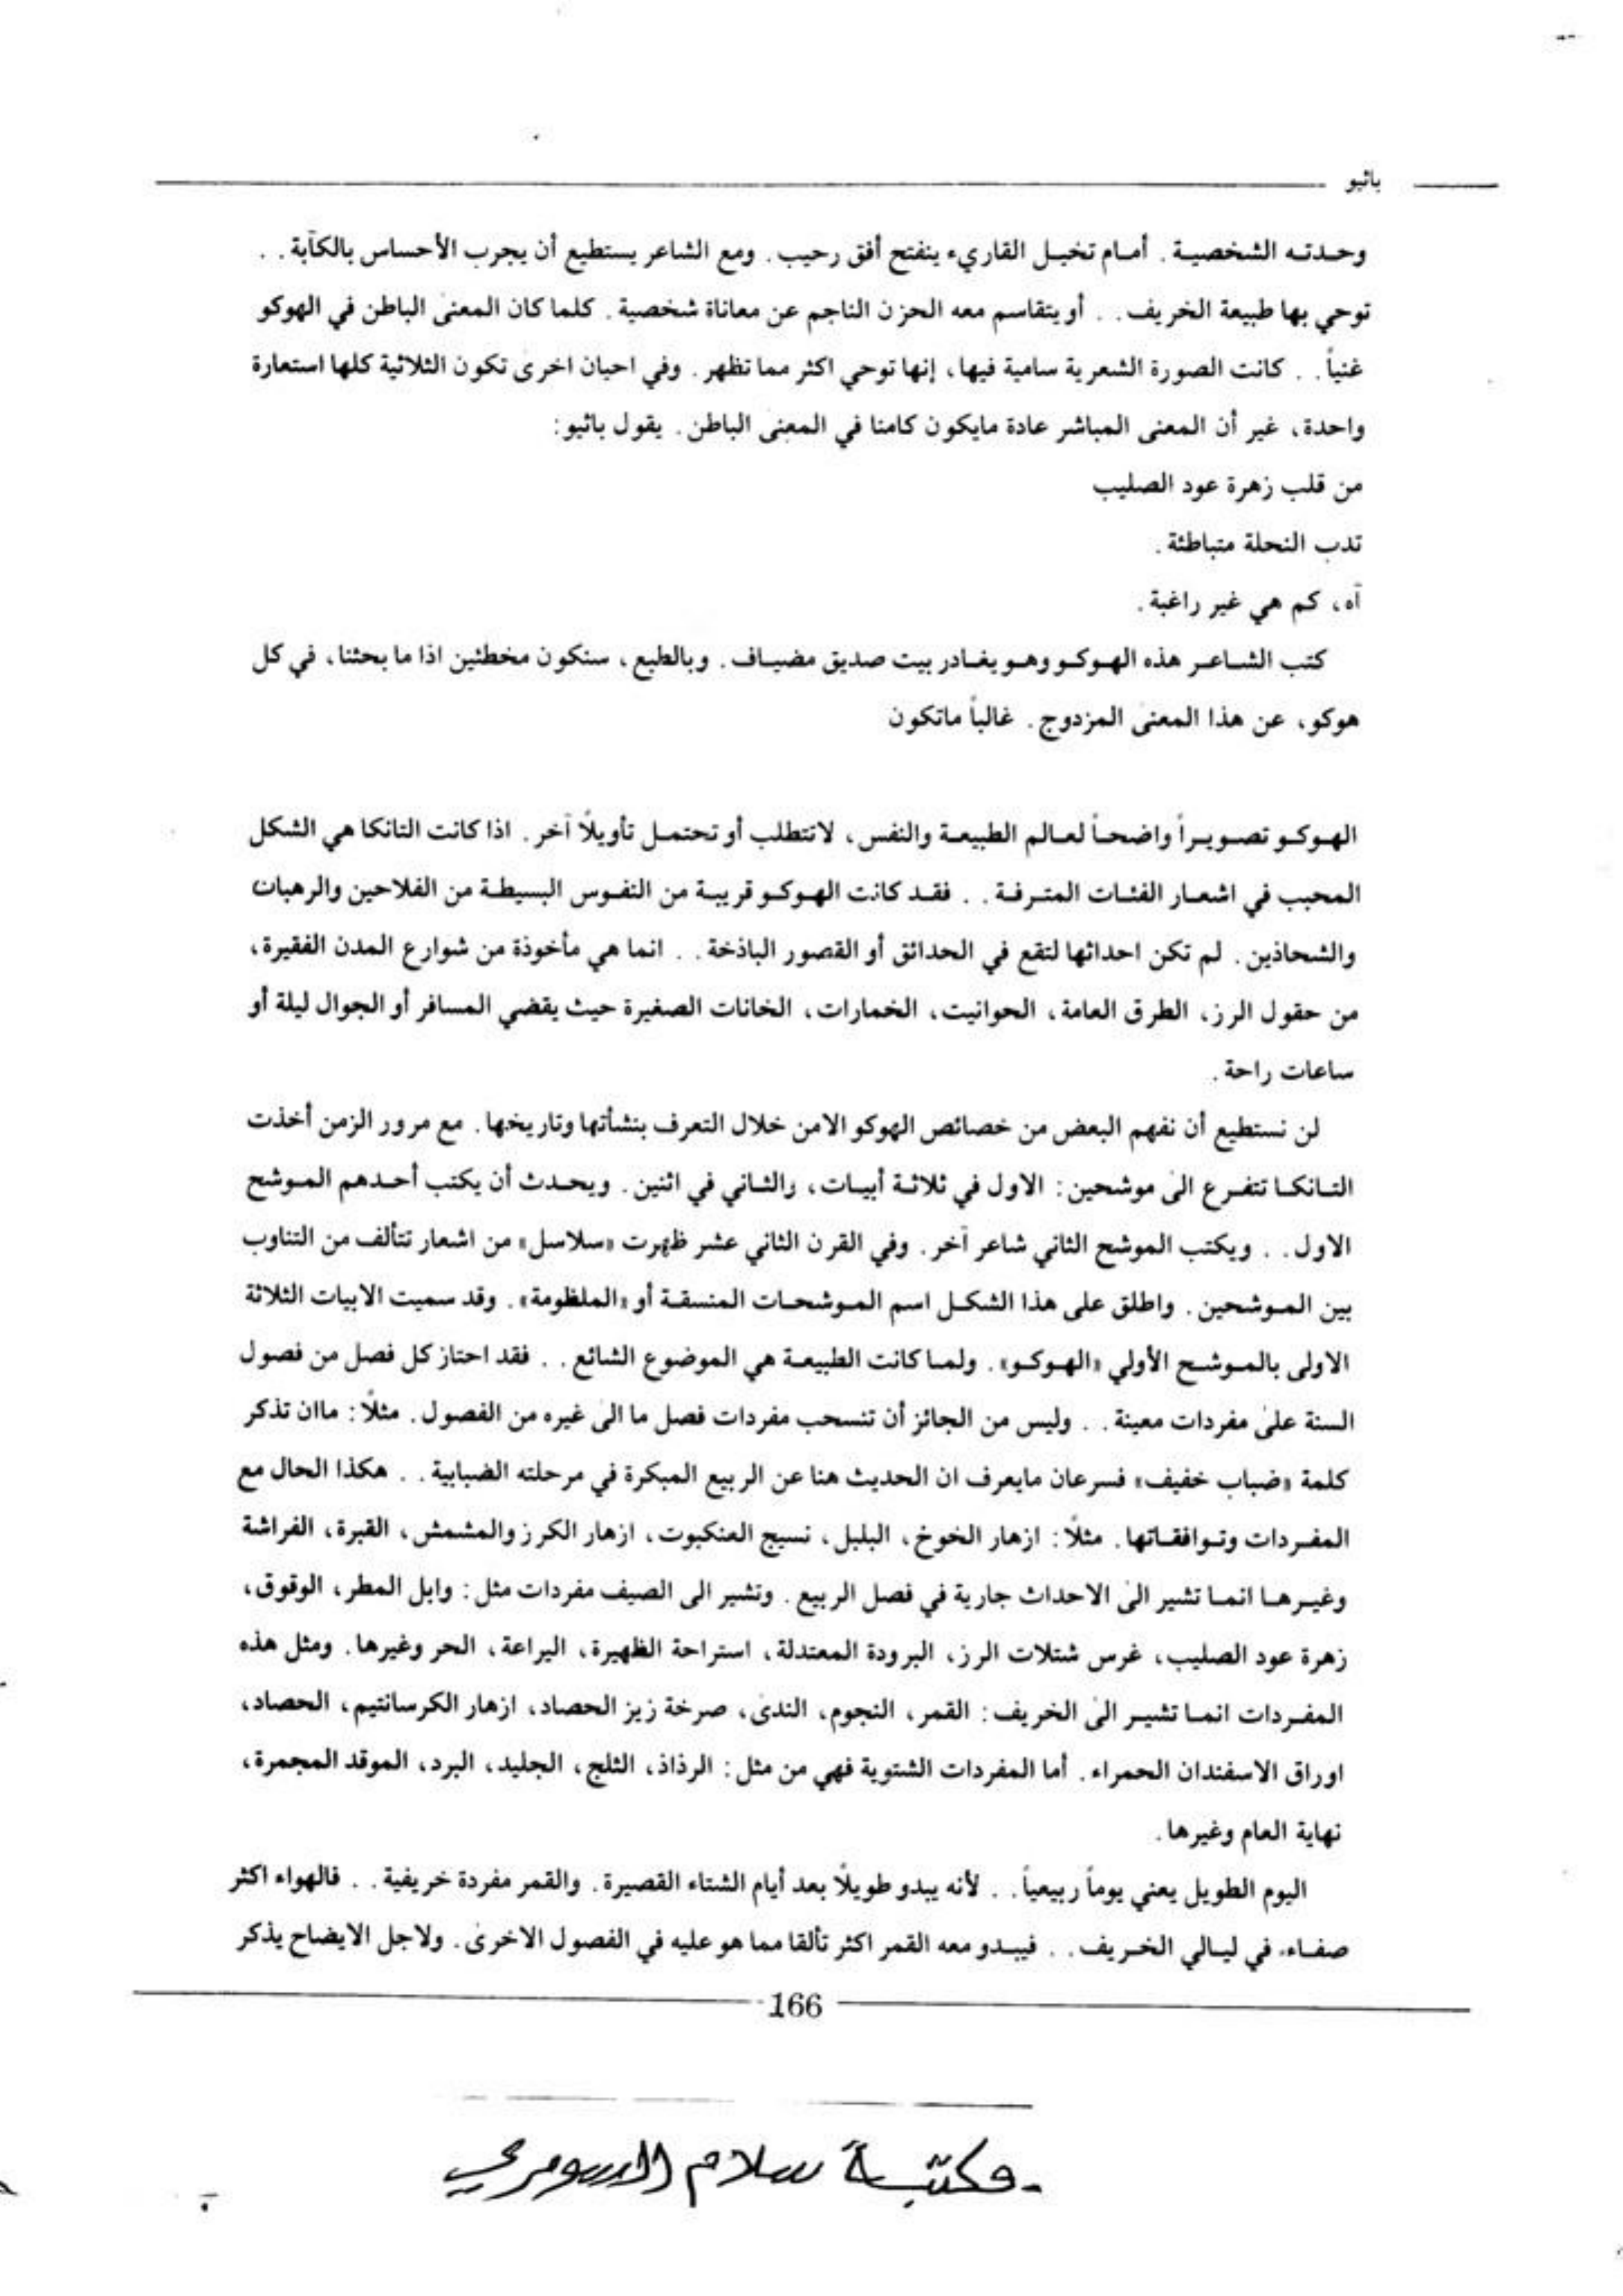 باثيو
وحدته الشخصية. أمام تخيل القاريء ينفتح أفق رحيب. ومع الشاعر يستطيع أن يجرب الأحساس بالكآبة. .
توحي بها طبيعة الخريف. . أو يتقاسم معه الحزن الناجم عن معاناة شخصية. كلما كان المعنى الباطن في الهوكو
غنياً. . كانت الصورة الشعرية سامية فيها، إنها توحي اكثر مما تظهر. وفي احيان اخرى تكون الثلاثية كلها استعارة
واحدة، غير أن المعنى المباشر عادة مايكون كامنا في المعنى الباطن. يقول باثيو:
من قلب زهرة عود الصليب
تدب النحلة متباطئة.
آه، كم هي غير راغبة.
كتب الشاعر هذه الهوكو وهو يغادر بيت صديق مضياف. وبالطبع، سنكون مخطئين اذا ما بحثنا، في كل
هوكو، عن هذا المعنى المزدوج. غالباً ماتكون
الهوكو تصويراً واضحاً لعالم الطبيعة والنفس، لاتتطلب أو تحتمل تأويلاً آخر. اذا كانت التانكا هي الشكل
المحبب في اشعار الفئات المترفة. . فقد كانت الهوكو قريبة من النفوس البسيطة من الفلاحين والرهبات
والشحاذين. لم تكن احداثها لتقع في الحدائق أو القصور الباذخة. . انما هي مأخوذة من شوارع المدن الفقيرة،
من حقول الرز، الطرق العامة، الحوانيت، الخمارات، الخانات الصغيرة حيث يقضي المسافر أو الجوال ليلة أو
ساعات راحة.
لن نستطيع أن نفهم البعض من خصائص الهوكو الامن خلال التعرف بنشأتها وتاريخها. مع مرور الزمن أخذت
التانكا تتفرع الى موشحين: الاول في ثلاثة أبيات، والثاني في اثنين. ويحدث أن يكتب أحدهم الموشح
الاول. . ويكتب الموشح الثاني شاعر آخر. وفي القرن الثاني عشر ظهرت «سلاسل» من اشعار تتألف من التناوب
بين الموشحين. واطلق على هذا الشكل اسم الموشحات المنسقة أو «الملظومة». وقد سميت الابيات الثلاثة
الاولى بالموشح الأولي «الهوكو». ولما كانت الطبيعة هي الموضوع الشائع. . فقد احتاز كل فصل من فصول
السنة على مفردات معينة. . وليس من الجائز أن تنسحب مفردات فصل ما الى غيره من الفصول. مثلاً: ماان تذكر
كلمة «ضباب خفيف» فسرعان مايعرف ان الحديث هنا عن الربيع المبكرة في مرحلته الضبابية. . هكذا الحال مع
المفردات وتوافقاتها. مثلاً: ازهار الخوخ، البلبل، نسيج العنكبوت، ازهار الكرز والمشمش، القبرة، الفراشة
وغيرها انما تشير الى الاحداث جارية في فصل الربيع. وتشير الى الصيف مفردات مثل: وابل المطر، الوقوق،
زهرة عود الصليب، غرس شتلات الرز، البرودة المعتدلة، استراحة الظهيرة، اليراعة، الحر وغيرها. ومثل هذه
المفردات انما تشير الى الخريف: القمر، النجوم، الندى، صرخة زيز الحصاد، ازهار الكرسانتيم، الحصاد،
اوراق الاسفندان الحمراء. أما المفردات الشتوية فهي من مثل: الرذاذ، الثلج، الجليد، البرد، الموقد المجمرة،
نهاية العام وغيرها.
اليوم الطويل يعني يوماً ربيعياً. . لأنه يبدو طويلاً بعد أيام الشتاء القصيرة. والقمر مفردة خريفية. . فالهواء اكثر
صفاء في ليالي الخريف. . فيبدو معه القمر اكثر تألقا مما هو عليه في الفصول الاخرى. ولاجل الايضاح يذكر
166
مكتبة سلام السومري